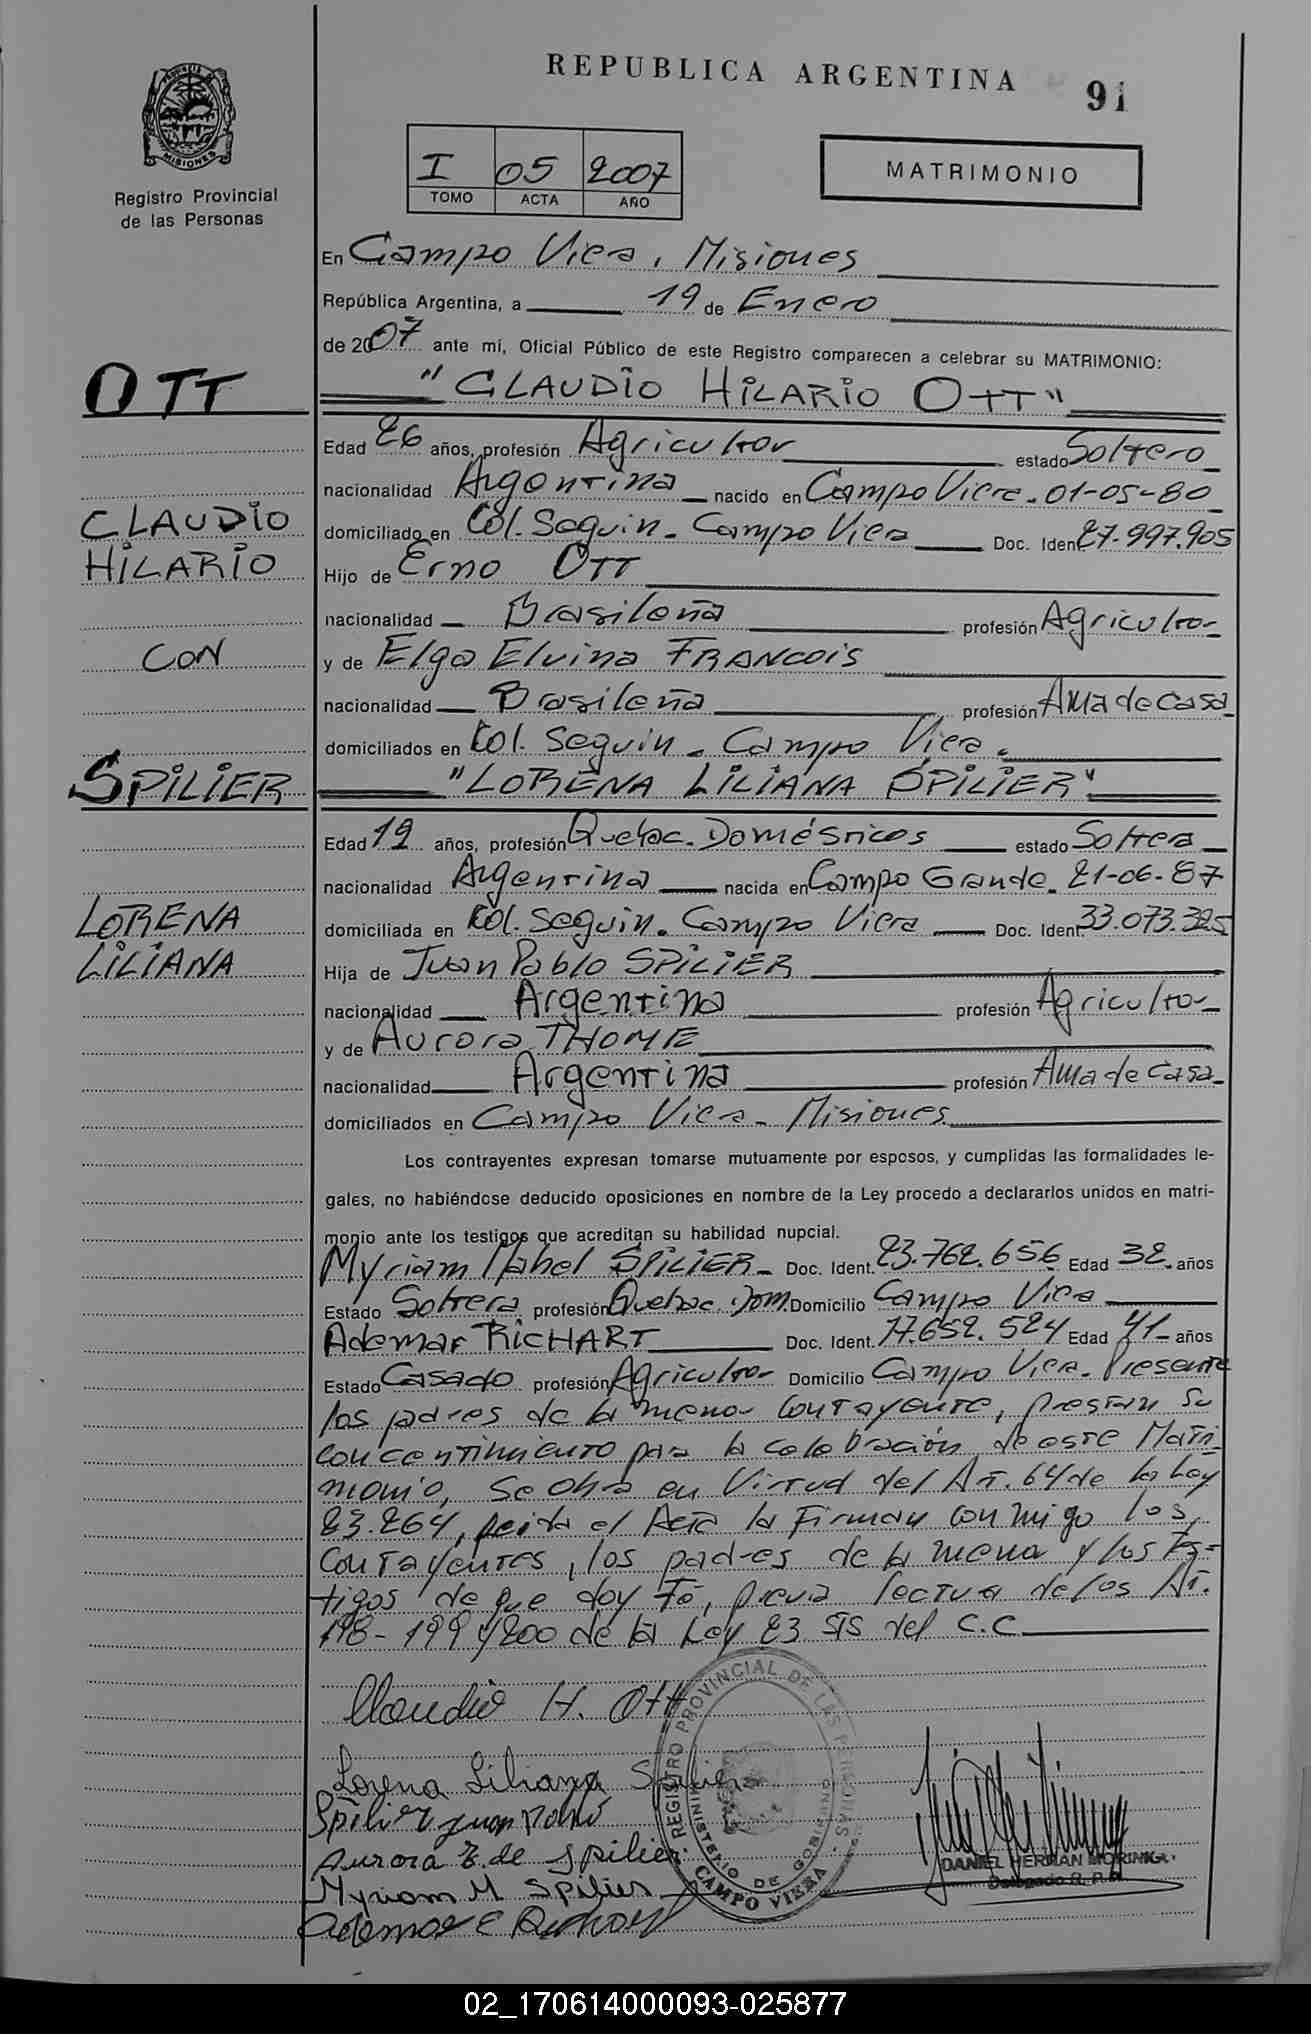 REPUBLICA ARGENTINA
91
MISIONES
Registro Provincial
de las Personas
I 05 2007
TOMO ACTA AÑO
MATRIMONIO
En Campo Viera, Misiones
República Argentina, a 19 de Enero
de 2007 ante mí, Oficial Público de este Registro comparecen a celebrar su MATRIMONIO:
OTT
"CLAUDIO HILARIO OTT"
Edad 26 años, profesión Agricultor estado Soltero
nacionalidad Argentina nacido en Campo Viera - 01-05-80
CLAUDIO
domiciliado en Col. Seguin - Campo Viera Doc. Ident. 27.997.905
HILARIO
Hijo de Erno OTT
nacionalidad Brasileña profesión Agricultor
CON
y de Elga Elvina FRANCOIS
nacionalidad Brasileña profesión Ama de Casa
domiciliados en Col. Seguin - Campo Viera.
SPILIER
"LORENA LILIANA SPILIER"
Edad 19 años, profesión Quehac. Domésticos estado Soltera
nacionalidad Argentina nacida en Campo Grande - 21-06-87
LORENA
domiciliada en Col. Seguin - Campo Viera Doc. Ident. 33.073.325
LILIANA
Hija de Juan Pablo SPILIER
nacionalidad Argentina profesión Agricultor
y de Aurora THOME
nacionalidad Argentina profesión Ama de Casa
domiciliados en Campo Viera - Misiones
Los contrayentes expresan tomarse mutuamente por esposos, y cumplidas las formalidades le-
gales, no habiéndose deducido oposiciones en nombre de la Ley procedo a declararlos unidos en matri-
monio ante los testigos que acreditan su habilidad nupcial.
Myriam Mabel SPILIER - Doc. Ident. 23.762.656 Edad 32 años
Estado Soltera profesión Quehac. Dom. Domicilio Campo Viera
Ademar RICHART Doc. Ident. 17.652.524 Edad 41 años
Estado Casado profesión Agricultor Domicilio Campo Viera - Presente
los padres de la menor contrayente, prestan su
concentimiento para la celebración de este Matri-
monio, se obra en Virtud del Art. 64 de la Ley
23.264, leida el Acta la Firman con migo los
contrayentes, los padres de la menor y los tes-
tigos de que doy Fé, previa lectura de los Art.
198 - 199 y 200 de la Ley 23.515 del C.C.
Claudio H. Ott
Lorena Liliana Spilier
Spilier Juan Pablo
Aurora T. de Spilier
Myriam M Spilier
Ademar E
REGISTRO PROVINCIAL DE LAS PERSONAS
MINISTERIO DE GOBIERNO
CAMPO VIERA
DANIEL HERNAN MORINKA
Delegado R. P. P.
02_170614000093-025877